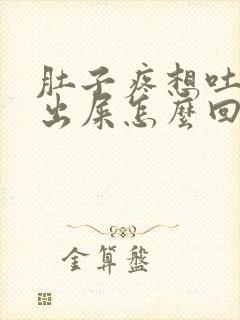 肚子疼想吐
出屎怎麼回
金算盤